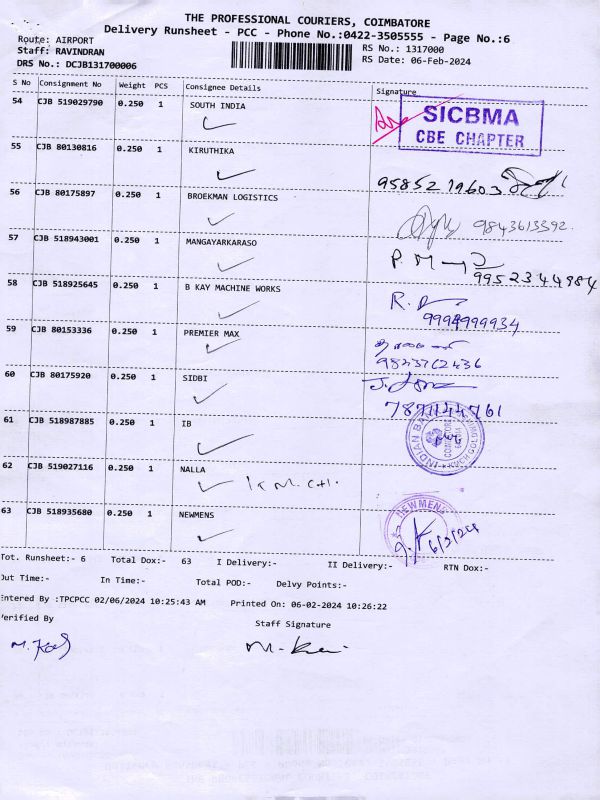 THE PROFESSIONAL COURIERS, COIMBATORE
Delivery Runsheet - PCC - Phone No.:0422-3505555 - Page No.:6
Route: AIRPORT
RS No.: 1317000
Staff: RAVINDRAN
RS Date: 06-Feb-2024
DRS No.: DCJB131700006
S No Consignment No Weight PCS Consignee Details Signature
54 CJB 519029790 0.250 1 SOUTH INDIA
SICBMA
CBE CHAPTER
55 CJB 80130816 0.250 1 KIRUTHIKA
9585219603
56 CJB 80175897 0.250 1 BROEKMAN LOGISTICS
9843613392
57 CJB 518943001 0.250 1 MANGAYARKARASO
9952344984
58 CJB 518925645 0.250 1 B KAY MACHINE WORKS
9994999934
59 CJB 80153336 0.250 1 PREMIER MAX
9843762436
60 CJB 80175920 0.250 1 SIDBI
61 CJB 518987885 0.250 1 IB
INDIAN BANK
62 CJB 519027116 0.250 1 NALLA
63 CJB 518935680 0.250 1 NEWMENS
NEWMENS
6/3/24
Tot. Runsheet:- 6 Total Dox:- 63 I Delivery:- II Delivery:- RTN Dox:-
Out Time:- In Time:- Total POD:- Delvy Points:-
Entered By :TPCPCC 02/06/2024 10:25:43 AM Printed On: 06-02-2024 10:26:22
Verified By
Staff Signature